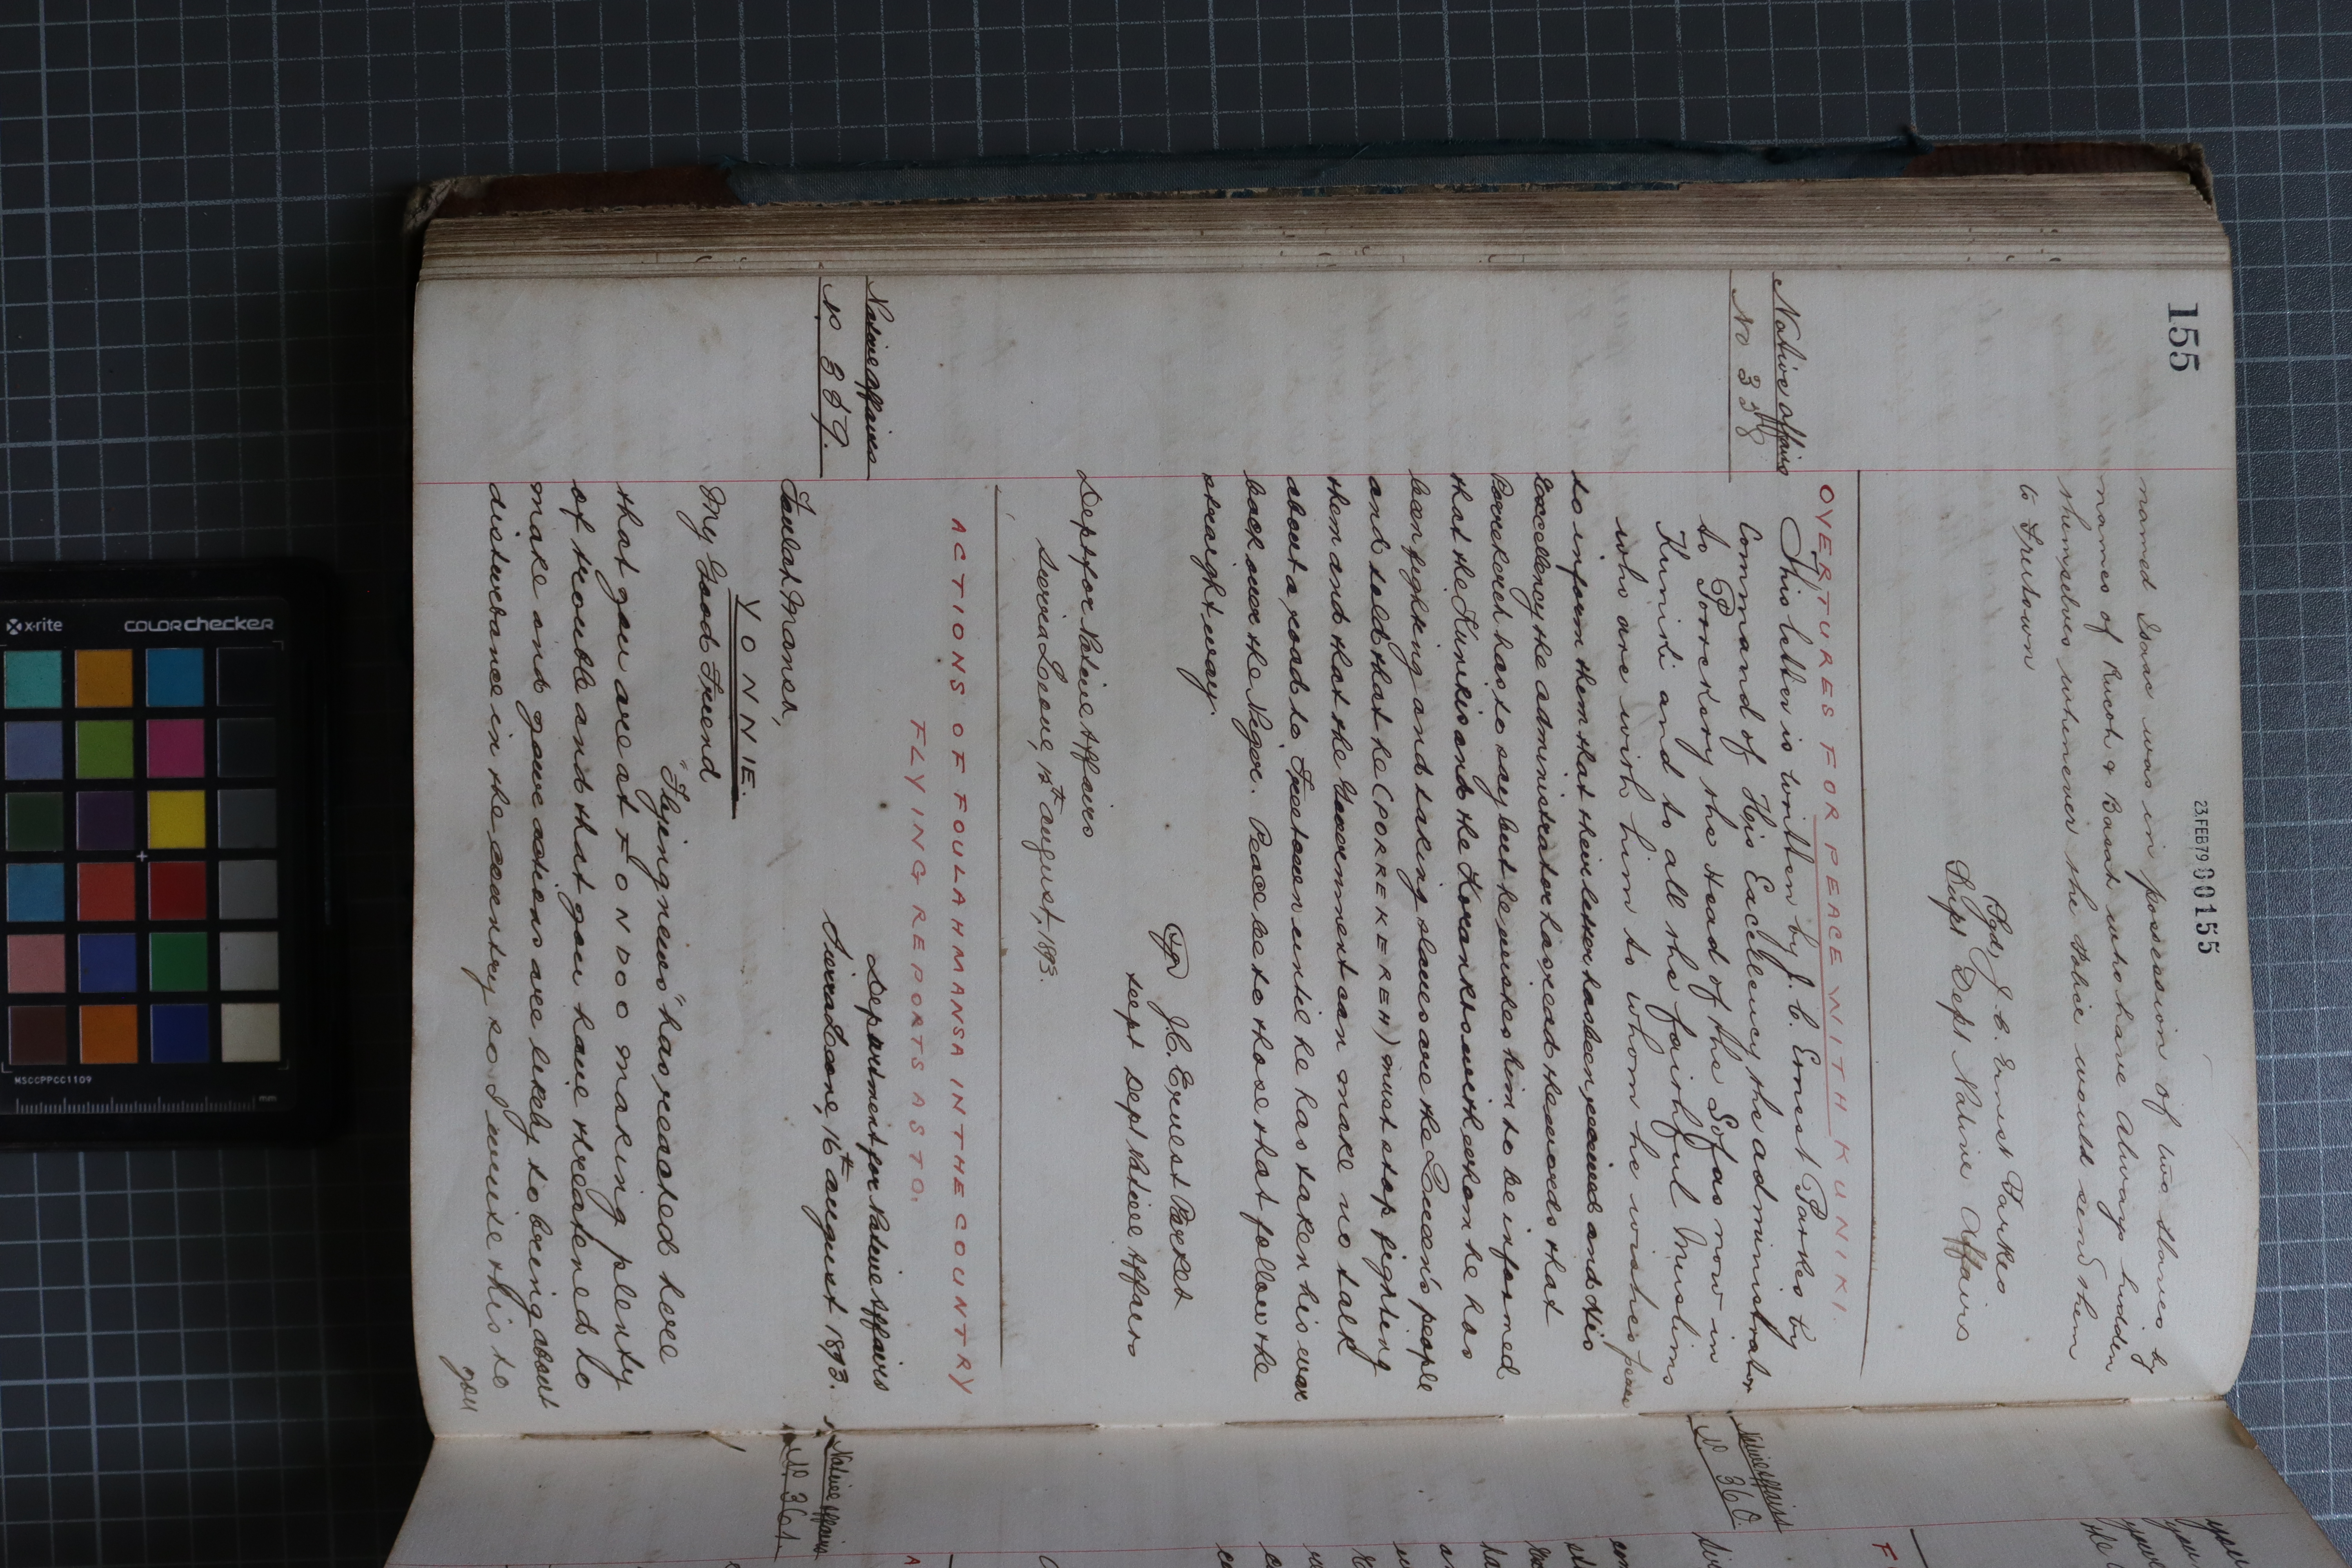 155
23 FEB 79 00155
named Isaac was in possession of two slaves by
names of Rucoh & Basah who have always hidden
themselves whenever the Police would send them
to Freetown
Sgd J. C. Ernest Parkes
Supt Dept Native Affairs
OVERTURES FOR PEACE WITH KUNIKI.
Native Affairs
No 358
This letter is written by J. C. Ernest Parkes by
Command of His Excellency the administrator
to Porrekery the Head of the Sofas now in
Kuniki and to all the faithful Muslims
who are with him to whom he wishes peace
to inform them that their letter has been received and His
Excellency the administrator has read the words that
Porrekereh has to say but he wishes him to be informed
that the Kunikis and the Korankos with whom he has
been fighting and taking slaves are the Queen's people
and told that he (PORREKEREH) must stop fighting
them and that the Government can make no talk
about a road to Freetown until he has taken his war
back over the Neger. Peace be to those that follow the
straight way.
J. C. Ernest Parkes
Supt Dept Native Affairs
Dept for Native Affairs
Sierra Leone, 15th August, 1893.
ACTIONS OF FOULAH MANSA IN THE COUNTRY
FLYING REPORTS AS TO.
Native Affairs
No 359.
Department for Native Affairs
Sierra Leone, 16th August 1893.
Foulah Mansa,
YONNIE.
My Good Friend
"Flying news" has reached here
that you are at FONDOO making plenty
of trouble and that you have threatened to
make and your actions are likely to bring about
disturbance in the country so I write this to
you
Native Affairs
No 360.
Native Affairs
No 361.